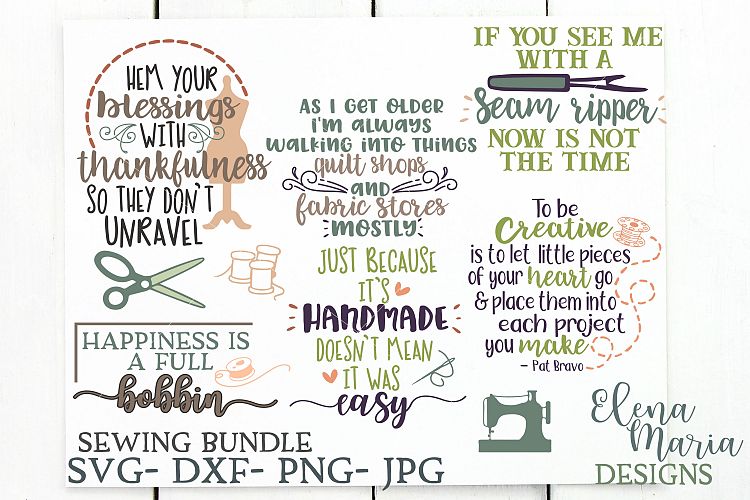 HEM YOUR
blessings
WITH
thankfulness
SO THEY DON'T
UNRAVEL
AS I GET OLDER
I'M ALWAYS
WALKING INTO THINGS
quilt shops
AND
fabric stores
MOSTLY
IF YOU SEE ME
WITH A
Seam ripper
NOW IS NOT
THE TIME
JUST BECAUSE
IT'S
HANDMADE
DOESN'T MEAN
IT WAS
easy
To be
Creative
is to let little pieces
of your heart go
& place them into
each project
you make
- Pat Bravo
HAPPINESS IS
A FULL
bobbin
SEWING BUNDLE
SVG- DXF- PNG- JPG
Elena
Maria
DESIGNS